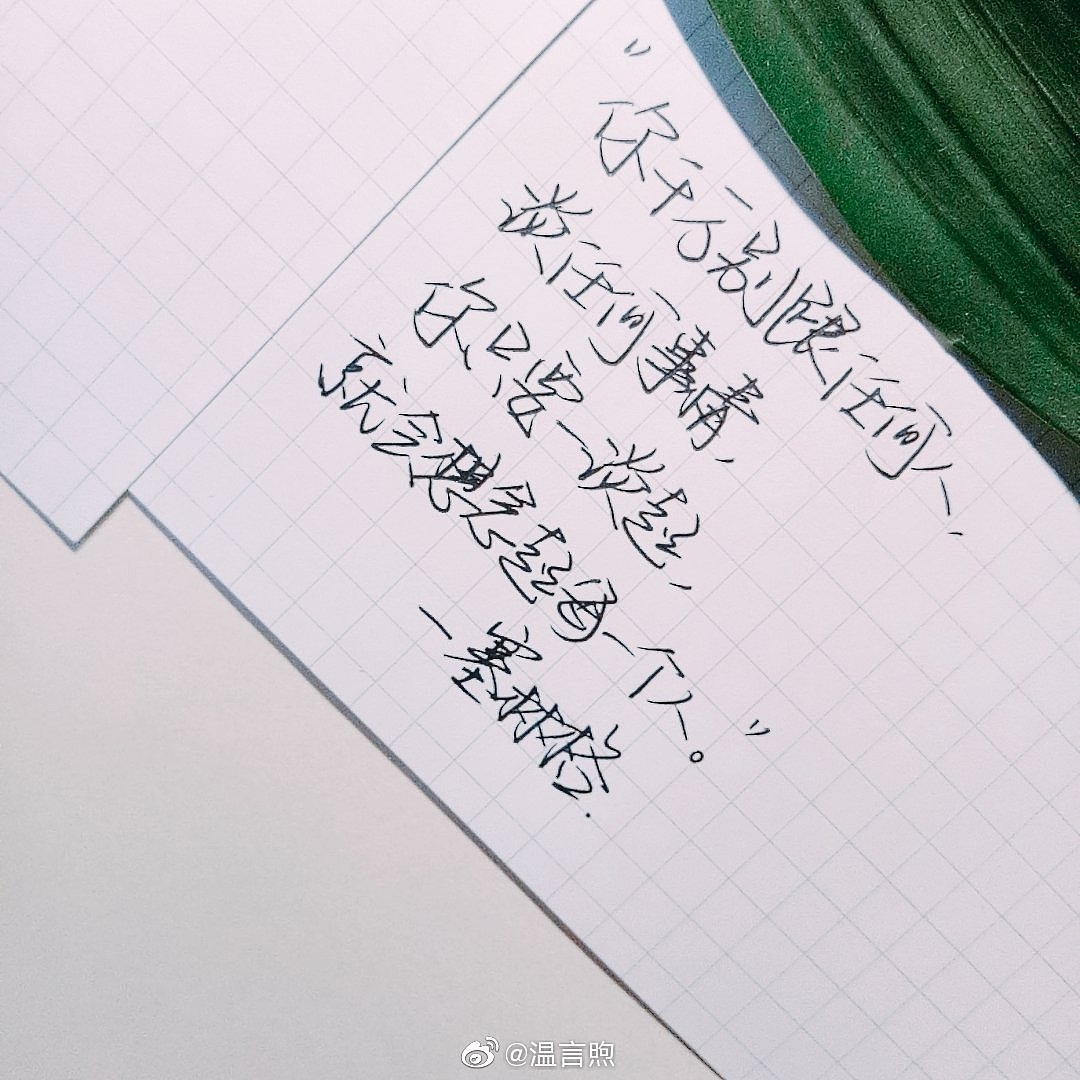 "你千万别跟任何人,
谈任何事情,
你只需一谈起,
就会想念起每一个人。"
—塞林格.
@温言煦